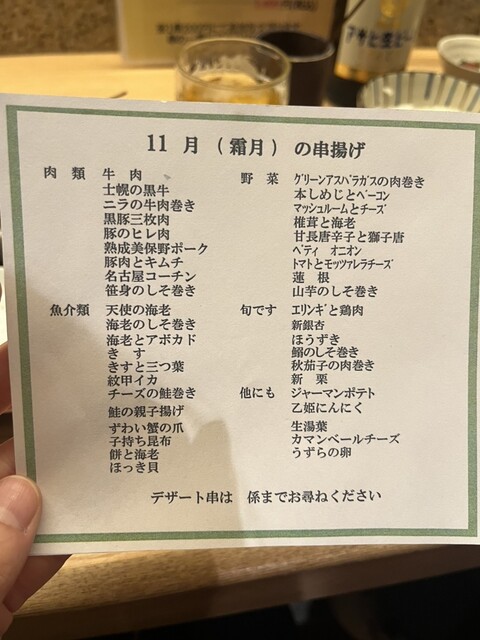 11 月 (霜月) の串揚げ
肉類 牛肉
士幌の黒牛
ニラの牛肉巻き
黒豚三枚肉
豚のヒレ肉
熟成美保野ポーク
豚肉とキムチ
名古屋コーチン
笹身のしそ巻き
魚介類 天使の海老
海老のしそ巻き
海老とアボカド
きす
きすと三つ葉
紋甲イカ
チーズの鮭巻き
鮭の親子揚げ
ずわい蟹の爪
子持ち昆布
餅と海老
ほっき貝
野菜 グリーンアスパラガスの肉巻き
本しめじとベーコン
マッシュルームとチーズ
椎茸と海老
甘長唐辛子と獅子唐
ペティ オニオン
トマトとモッツァレラチーズ
蓮根
山芋のしそ巻き
旬です エリンギと鶏肉
新銀杏
ほうずき
鰯のしそ巻き
秋茄子の肉巻き
新栗
他にも ジャーマンポテト
乙姫にんにく
生湯葉
カマンベールチーズ
うずらの卵
デザート串は 係までお尋ねください